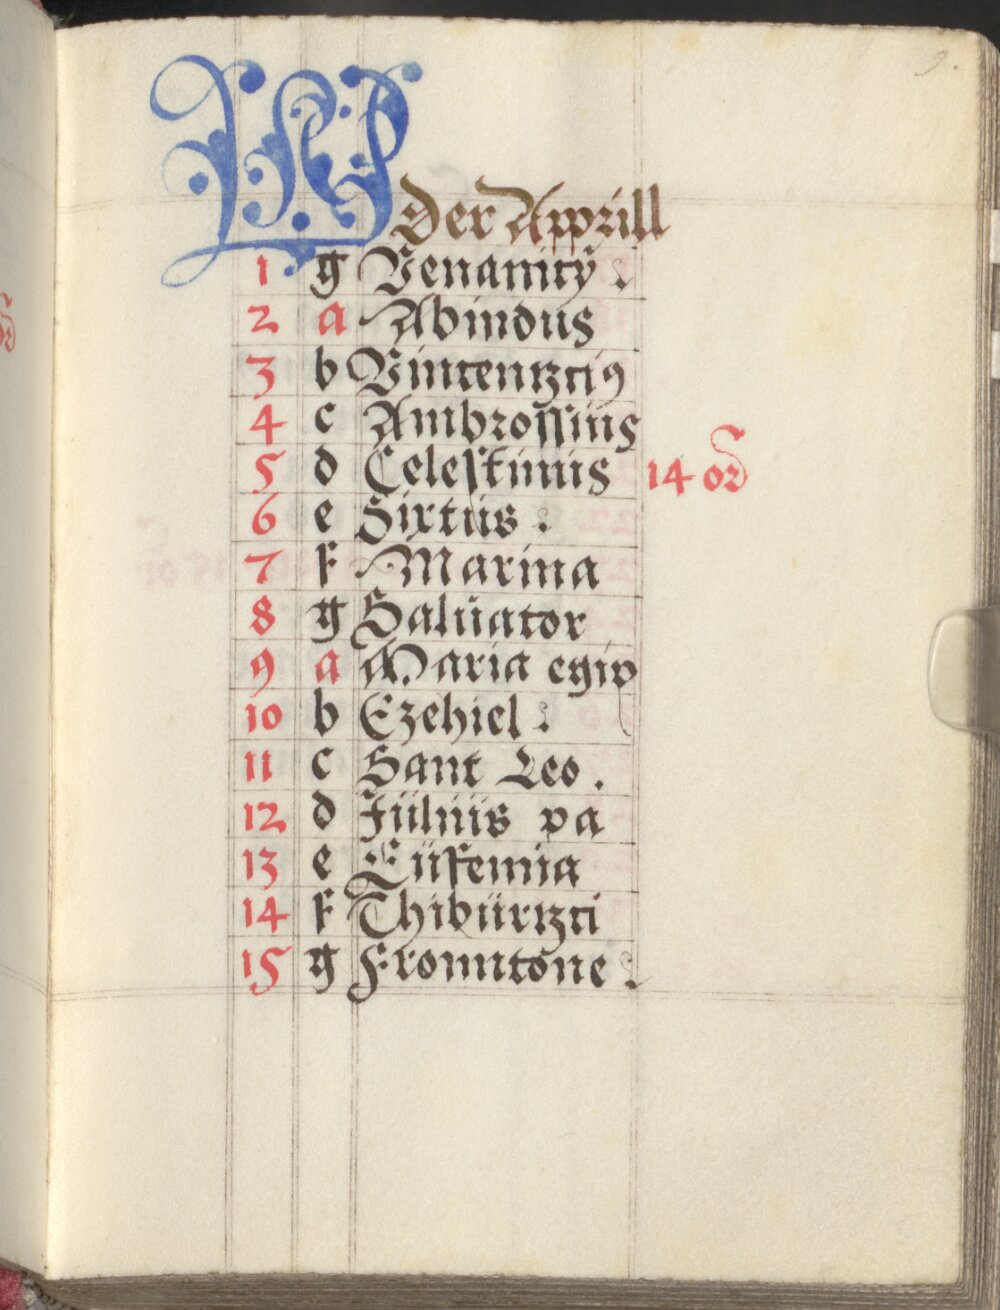 9.
KL
Der Apprill
1 g Venanitÿ .
2 a Abindus
3 b Vintentzciꝯ
4 c Ambrossius
5 d Celestinus 14 or
6 e Sixtus .
7 f Marina
8 g Salüator
9 a Maria egip
10 b Ezehiel .
11 c Sant Leo .
12 d Jüliüs pa
13 e Eüfemia
14 f Thibürtzci
15 g Fronntone .